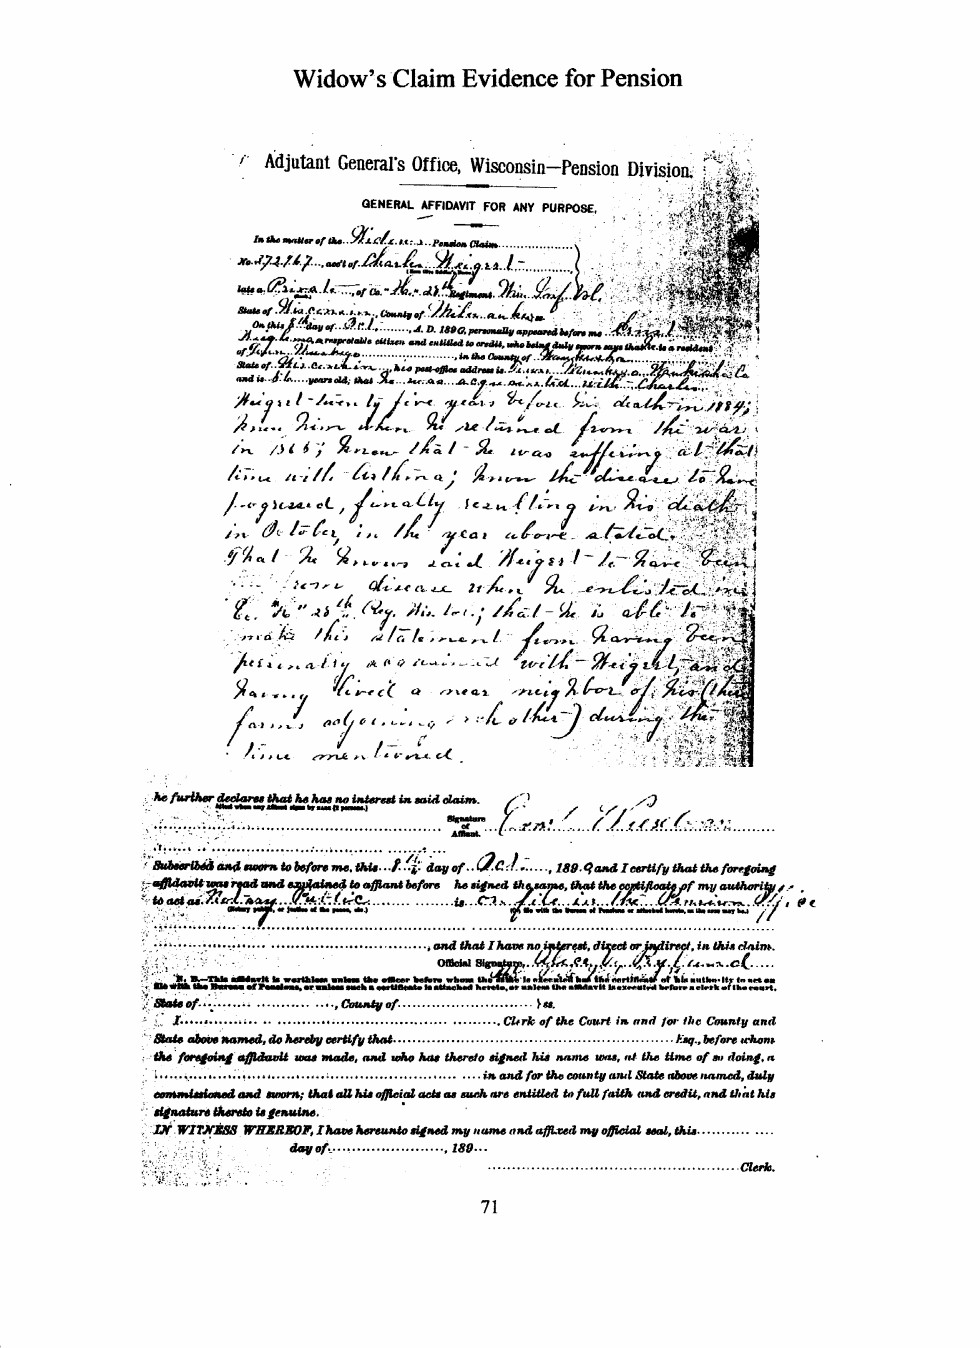 Widow's Claim Evidence for Pension
Adjutant General's Office, Wisconsin—Pension Division.
GENERAL AFFIDAVIT FOR ANY PURPOSE.
In the matter of the Widows Pension Claim
acc't of Charles Weigert
late a Private of Co. "K" 28th Regiment Wis. Inf. Vol.
State of Wisconsin, County of Milwaukee
On this 8th day of Oct., A. D. 1890, personally appeared before me Ernst
a respectable citizen and entitled to credit, who being duly sworn says that he is a resident
of Town in the County of Waukesha
State of Wisconsin his post-office address is Waukesha Co
and is years old; that He was acquainted with Charles
Weigert twenty five years before his death in 1884;
knew him when he returned from the war
in 1865; knew that he was suffering at that
time with Asthma; know the disease to have
progressed, finally resulting in his death
in October, in the year above stated.
That he knows said Weigert to have been
from disease when he enlisted in
Co. "K" 28th Reg. Wis. that he is able to
make this statement from having been
personally acquainted with Weigert, and
having lived a near neighbor of his (their
farms adjoining each other) during the
time mentioned.
he further declares that he has no interest in said claim.
Signature
of
Affiant.
Ernst
Subscribed and sworn to before me, this 8th day of Oct., 1890 and I certify that the foregoing
affidavit was read and explained to affiant before he signed the same, that the certificate of my authority
to act as Notary Public is on file in the Pension Office
(Notary public, or justice of the peace, etc.)
, and that I have no interest, direct or indirect, in this claim.
Official Signature,
N. B.—This affidavit is worthless unless the officer before whom the same is executed has the certificate of his authority to act on
file with the Bureau of Pensions, or unless such a certificate is attached hereto, or unless the affidavit is executed before a clerk of the court.
State of , County of } ss.
I , Clerk of the Court in and for the County and
State above named, do hereby certify that Esq., before whom
the foregoing affidavit was made, and who has thereto signed his name was, at the time of so doing, a
in and for the county and State above named, duly
commissioned and sworn; that all his official acts as such are entitled to full faith and credit, and that his
signature thereto is genuine.
IN WITNESS WHEREOF, I have hereunto signed my name and affixed my official seal, this
day of , 189
Clerk.
71